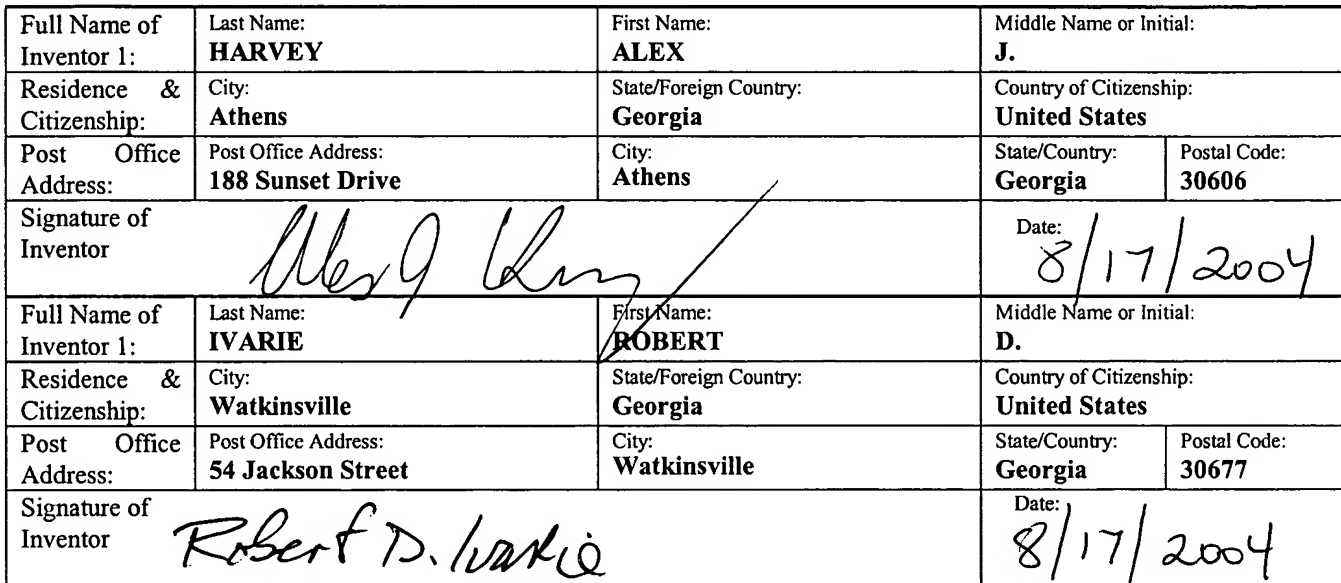 Full Name of Inventor 1: Last Name: HARVEY First Name: ALEX Middle Name or Initial: J.
Residence & Citizenship: City: Athens State/Foreign Country: Georgia Country of Citizenship: United States
Post Office Address: Post Office Address: 188 Sunset Drive City: Athens State/Country: Georgia Postal Code: 30606
Signature of Inventor Alex J Date: 8/17/2004
Full Name of Inventor 1: Last Name: IVARIE First Name: ROBERT Middle Name or Initial: D.
Residence & Citizenship: City: Watkinsville State/Foreign Country: Georgia Country of Citizenship: United States
Post Office Address: Post Office Address: 54 Jackson Street City: Watkinsville State/Country: Georgia Postal Code: 30677
Signature of Inventor Robert D. Ivarie Date: 8/17/2004